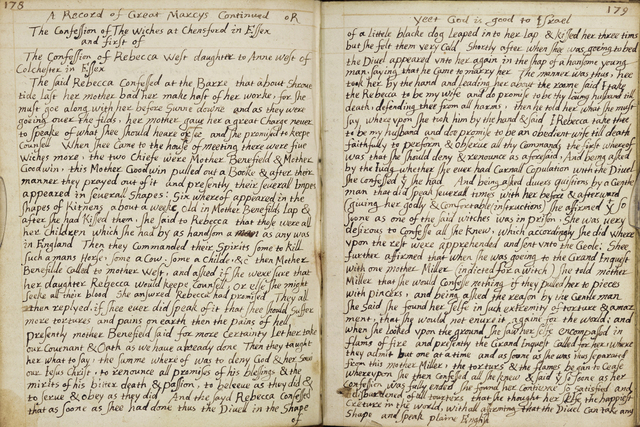 178
A Record of Great Marcys Continued oR
The Confession of The Wiches at Chensford in Essex
and first of
The Confession of Rebecca West daughter to Anne West of
Colchester in Essex
The said Rebecca Confessed at the Barre that about Shrove
tide last her mother bad her make hast of her worke, for she
must goe along with her before Sunne downe and as they were
going over The feilds, her mother gave her a great Charge never
to speake of what shee should heare or see and she promised to keepe
Counsell When shee Came to the house of meeting there were five
Wiches more, the two Chiefe were Mother Benefield & Mother
Goodwin, this Mother Goodwin pulled out a Booke & after their
manner they prayed out of it and presently their severall Imps
appeared in severall Shapes: Six whereof appeared in the
shapes of Kitnens about a weeke old in Mother Benefild Lap &
after she had Kissed them, she said to Rebecca that those were all
her Children which she had by as handsom a man as any was
in England Then they Commanded their Spirits some to Kill
such a mans Horse, some a Cow, some a Childe &c then Mother
Benefilde Called to mother West, and asked if she were sure that
her daughter Rebecca would keepe Counsell, Or else she might
seeke all their blood She answered Rebecca had promised They all
then replied if shee ever did speake of it that shee should suffer
more tortures and pains on earth than the Pains of hell
presently mother Benefield said for more Certainty Let her take
our Couenant & Oath as we have already done Then they taught
her what to say: the summe where of was to deny God & her Saviour
our Iesus Christ, to renounce all promises of his blessings & the
mirits of his bitter death & passion, to beleeve as they did &
to serve & obey as they did And the sayd Rebecca Confessed
that as soone as shee had done thus the Diuell in the Shape
of
179
Yeet God is good to Israel
of a little blacke dog leaped into her lap & kissed her three times
but she felt them very Cald Shortly after when shee was going to bed
the Diuel appeared vnto her again in the shap of a hansom young
man, saying that he came to marry her The manner was thus, he
took her by the hand and leading her about the roome said I take
the Rebecca to be my wife and do promise to be thy louing husband till
death, defending thee from all harms, then he told her what she must
say, where vpon she took him by the hand & said I Rebecca take thee
to be my husband and doe promise to be an obedient wife till death
faithfully to perform & observe all thy Commands the first whereof
was that she should deny & renounce as aforesaid, And being asked
by the Iudg whether she ever had Carnall Copulation with the Diuel
she confessed & she had And being asked divers questions by a Gentle
man who did speak severall times with her before & afterward
(giuing her godly & Comfortable instructions) she affirmed & so
soone as one of the said witches was in prison, she was very
desirous to Confesse all she Knew, which accordingly she did where
vpon the rest were apprehended and sent vnto the Geole. Shee
further affirmed that when she was going to the Grand Inquest
with one mother Miller (indicted for a witch) she told mother
Miller that she would Confesse nothing if they pulled her to pieces
with pincers, and being asked the reason by the Gentleman
She said she found her selfe in such extremity of torture & amaz
ment, that she would not endure it againe for the world: and
when she looked upon the ground she saw her selfe encompassed in
flames of fire and presently the Grand inquest Called for her, where
they admit but one at a time and as soone as she was thus separated
from this mother Miller, the tortures & the flames began to Cease
whereupon she then confessed all she knew & said & so soone as her
Confession was fully ended she found her Contience so satisfied, and
disburdened of all tourters that she thought her selfe the happiest
Creature in the world, with all affirming that the Diuell Can take any
Shape and speak plaine English